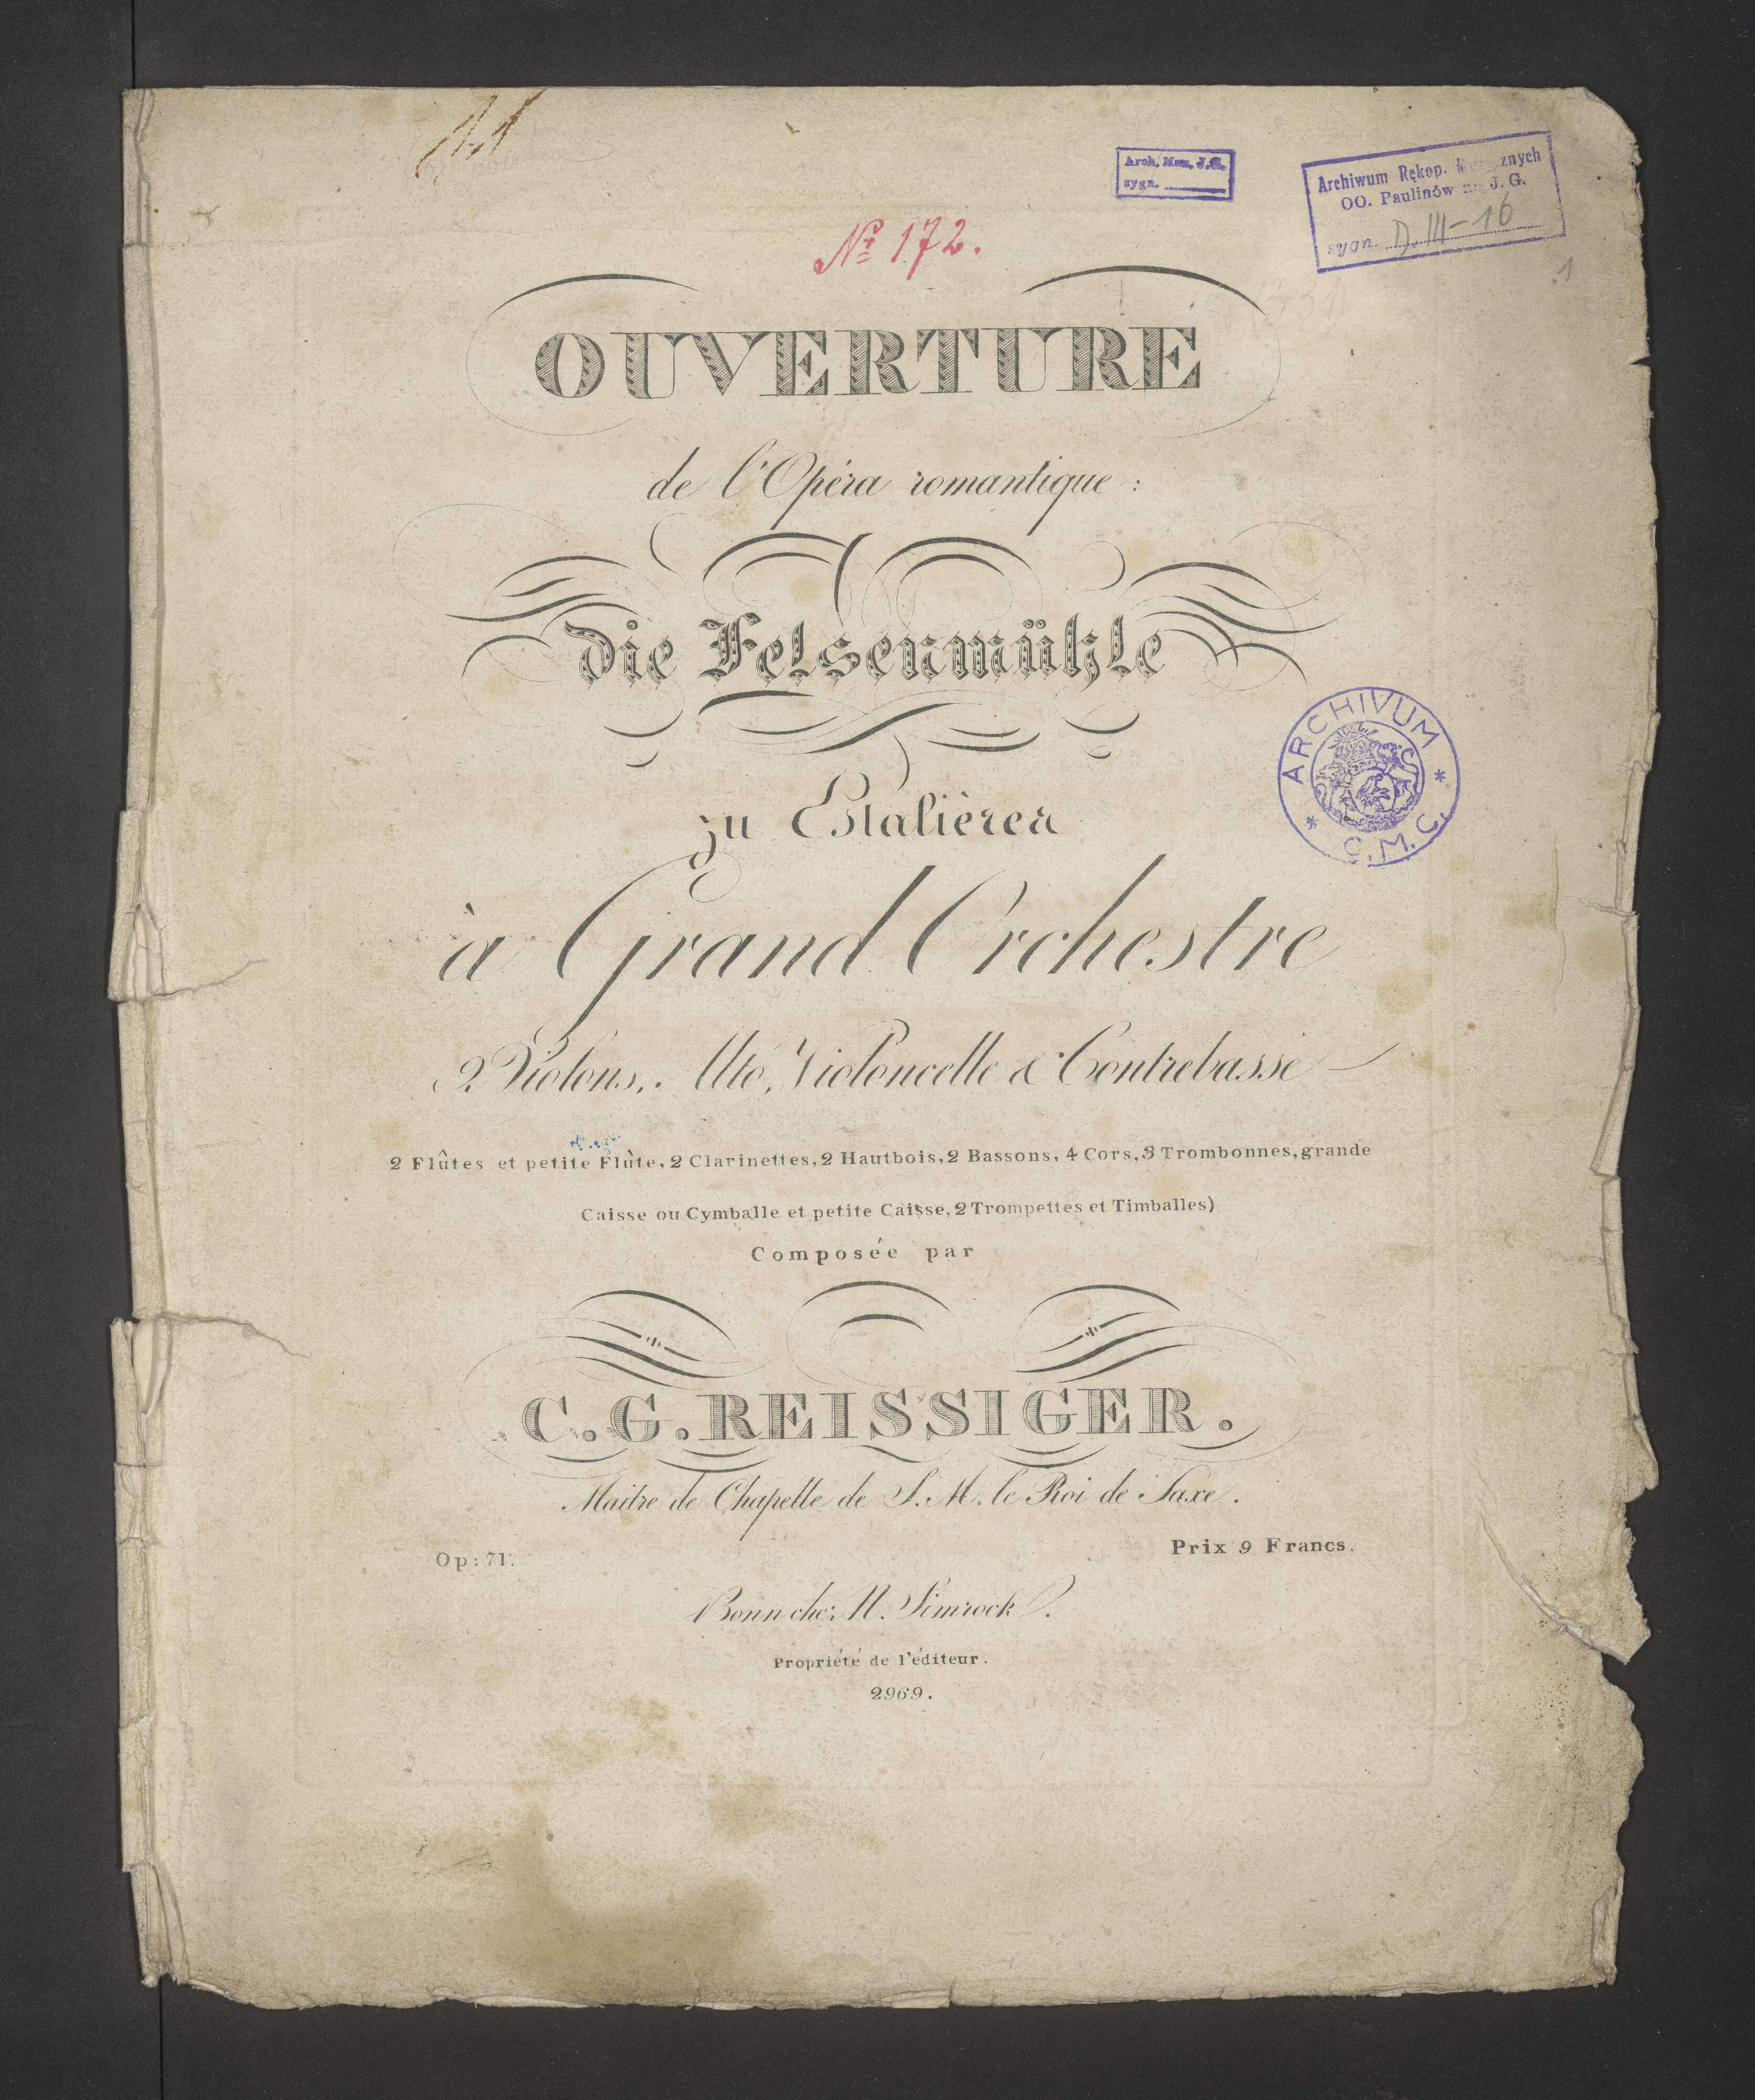 Arch. Muz. J.G.
sygn.
Archiwum Rękop. znych
OO. Paulinów J. G.
sygn. D. III-16
1
№ 172.
OUVERTURE
de l'Opéra romantique :
die Felsenmühle
ARCHIVUM * C.M.C. *
zu Etalières
à Grand Orchestre
2 Violons, Alto, Violoncelle & Contrebasse
2 Flûtes et petite Flûte, 2 Clarinettes, 2 Hautbois, 2 Bassons, 4 Cors, 3 Trombonnes, grande
Caisse ou Cymballe et petite Caisse, 2 Trompettes et Timballes)
Composée par
C. G. REISSIGER.
Maitre de Chapelle de S. M. le Roi de Saxe.
Op: 71.
Prix 9 Francs.
Bonn chez N. Simrock.
Propriété de l'éditeur.
2969.